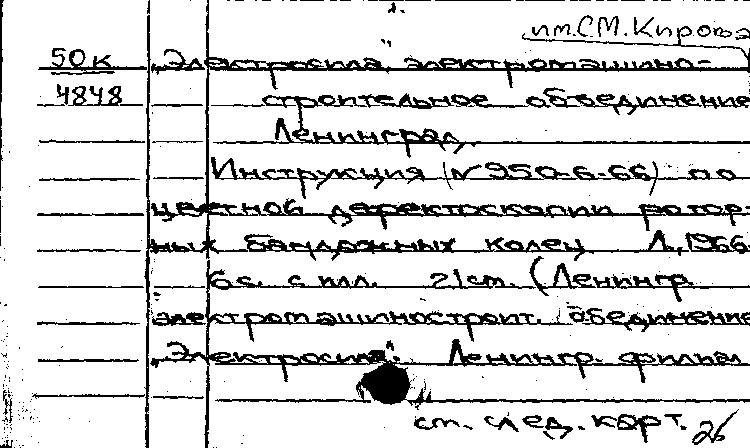 им. С.М. Кирова
50к
4848
„Электросила", электромашино-
строительное объединение
Ленинград.
Инструкция (№ 950-6-66) по
цветной дефектоскопии ротор-
ных бандажных колец Л., 1966.
6 с. с илл. 21 см. (Ленингр.
электромашиностроит. объединение
„Электросила". Ленингр. филиал
см. след. карт. 26